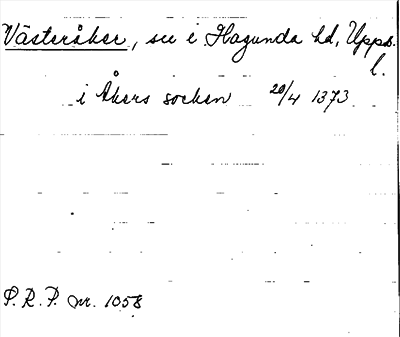 Västeråker, sn i Hagunda hd, Upps.
l.
i Åkers socken 20/4 1373
P. R. P. nr. 1058